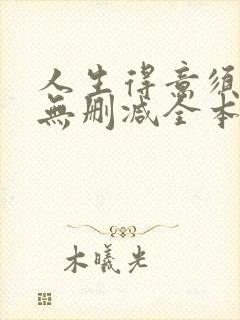 人生得意须
無删减全本
木曦光